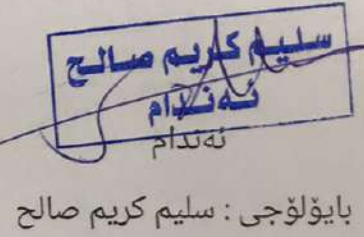 سليم كريم صالح
ئەندام
ئەندام
بايۆلۆجى : سليم كريم صالح